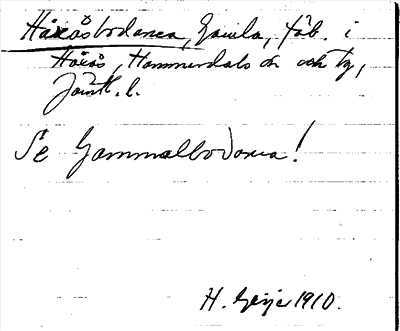 Håxåsbodarna, Gamla, fäb. i
Håxås, Hammerdals sn och tg,
Jämtl. l.
Se Gammalbodarna!
H. Geijer 1910.